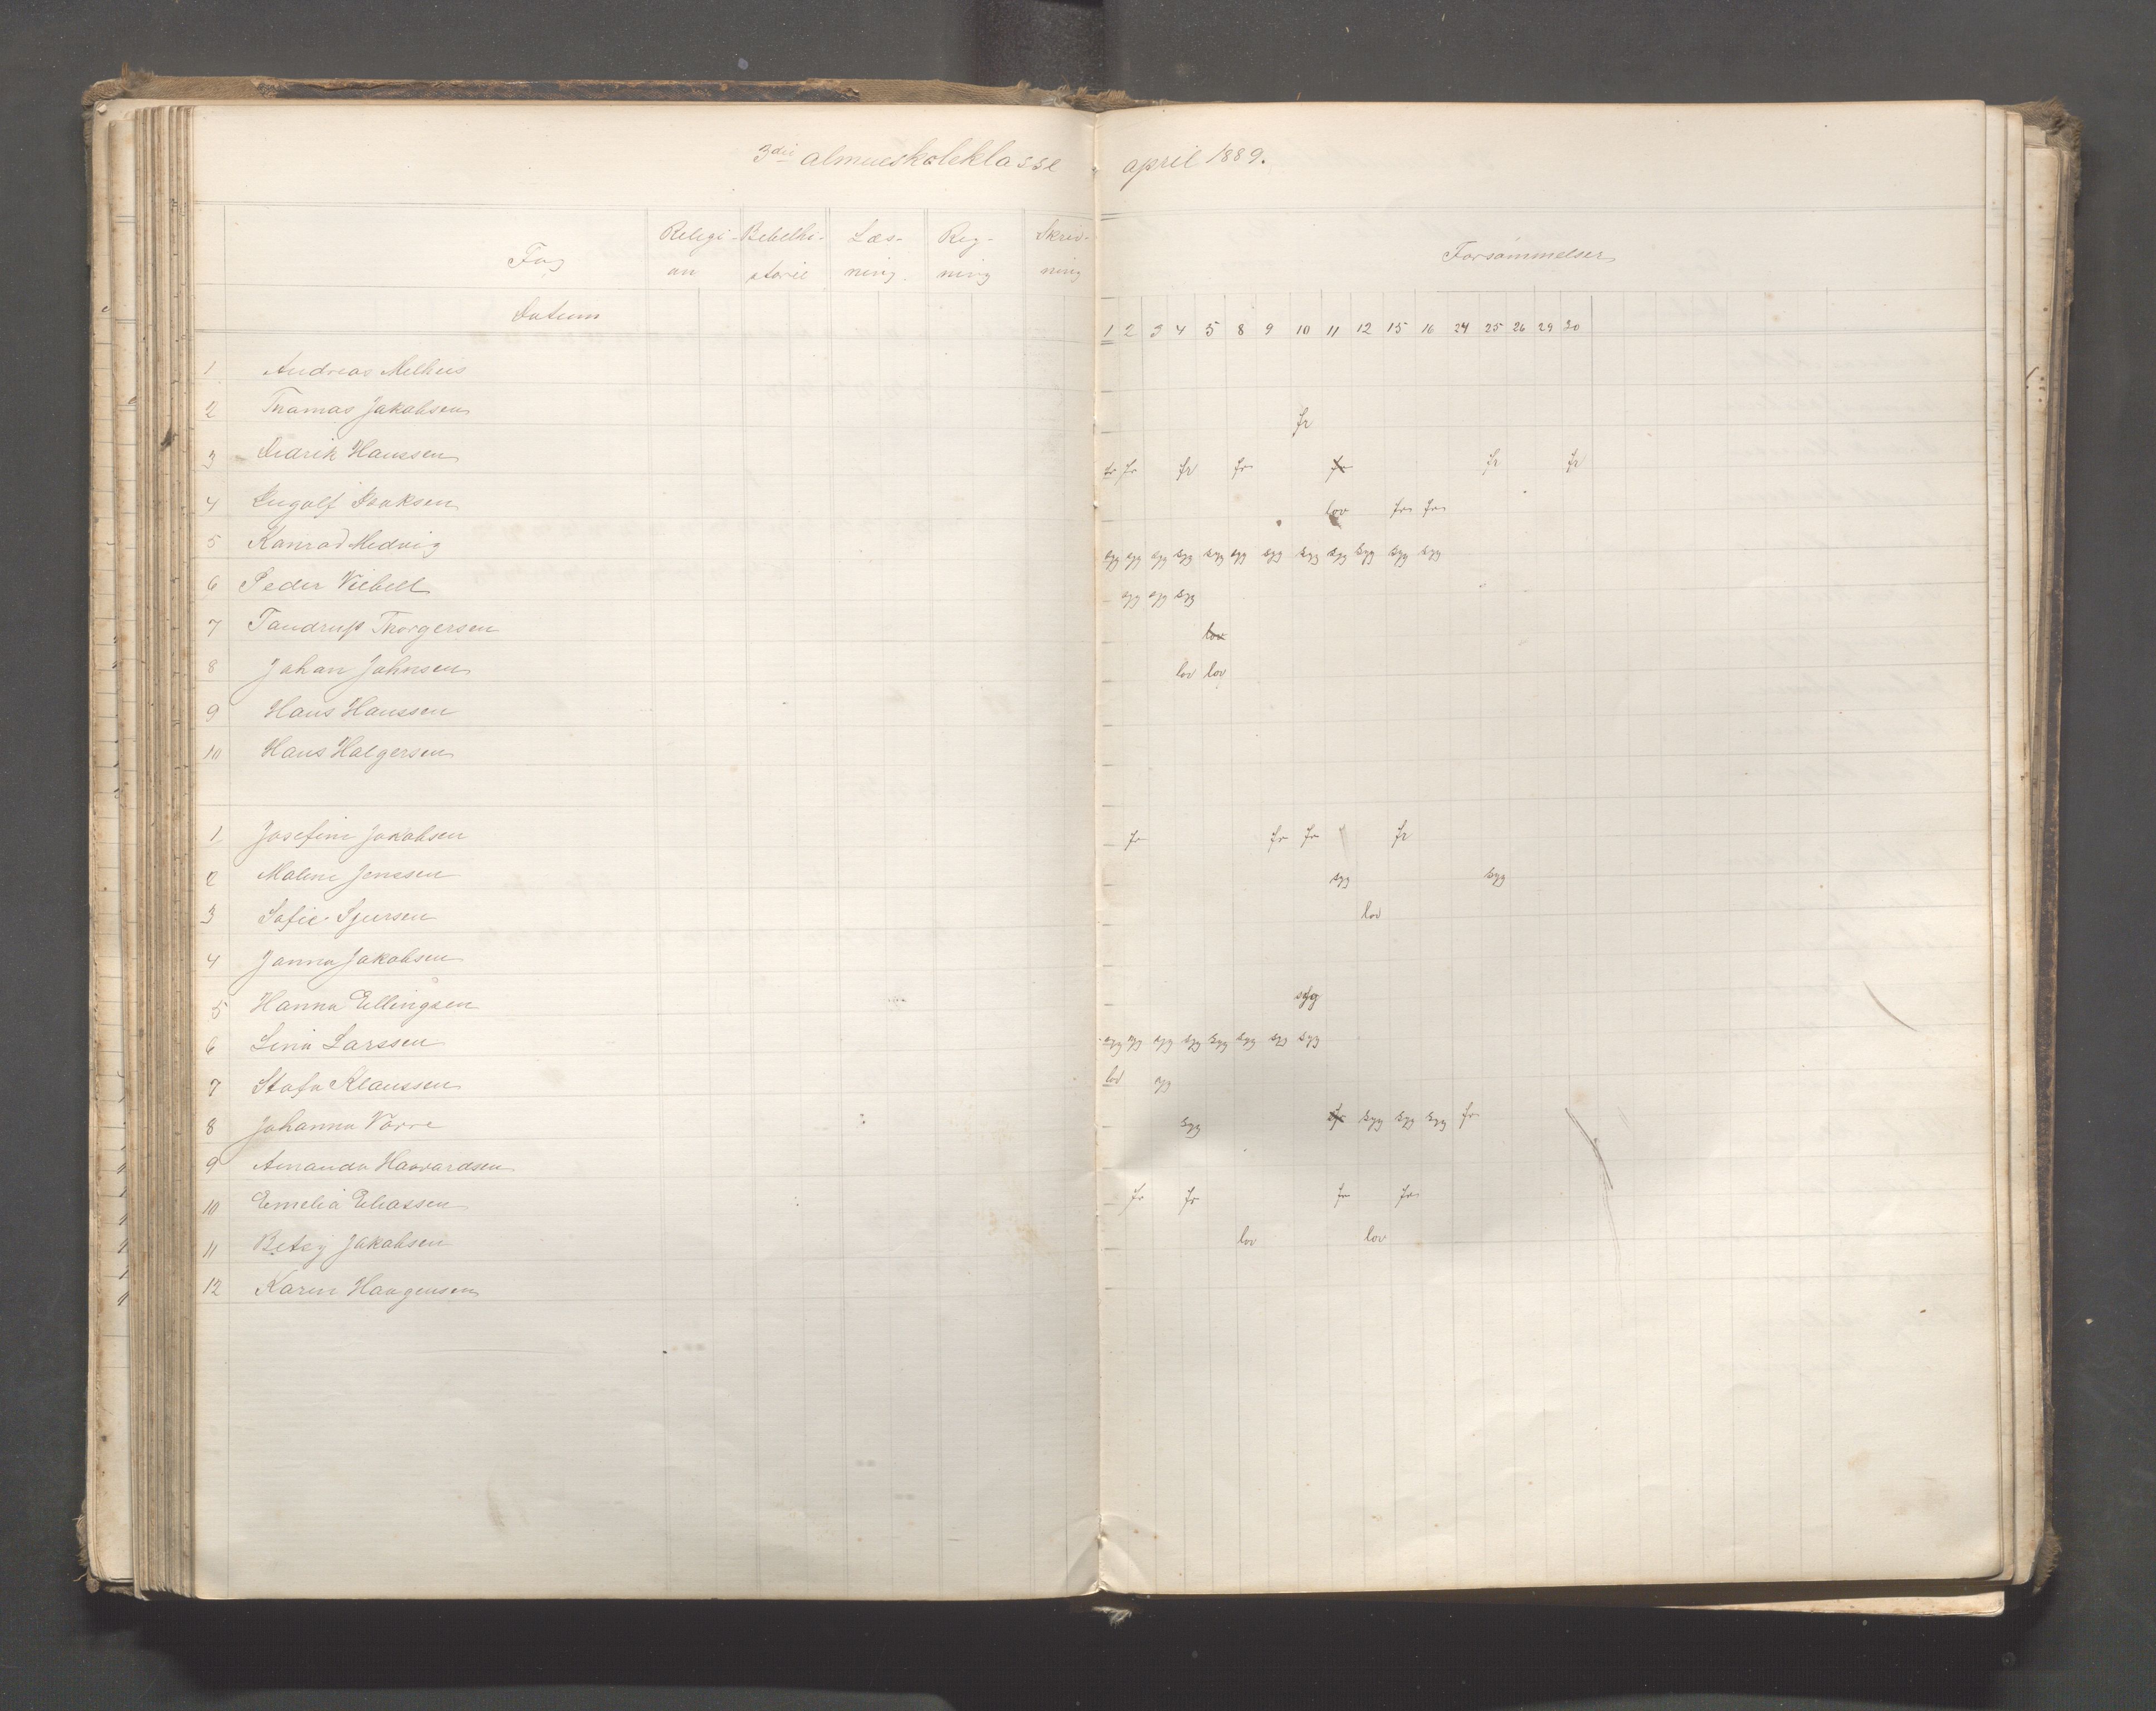 3die almueskoleklasse april 1889.
Fag Religi- Bibelhi- Læs- Reg- Skriv- Forsømmelser
on storie ning. ning ning
Datum 1 2 3 4 5 8 9 10 11 12 15 16 24 25 26 29 30
1 Andreas Melhus
2 Thomas Jakobsen fr
3 Didrik Hanssen fr fr fr fr fr fr fr
4 Ingolf Isaksen lov fr fr
5 Konrad Medvig syg syg syg syg syg syg syg syg syg syg syg syg
6 Peder Viebell syg syg syg
7 Tandrup Thorgersen lov
8 Johan Johnsen lov lov
9 Hans Hanssen
10 Hans Halgersen
1 Josefine Jakobsen fr fr fr fr
2 Maline Jenssen syg syg
3 Sofie Sjursen lov
4 Janna Jakobsen
5 Hanna Ellingsen syg
6 Lina Larssen syg syg syg syg syg syg syg syg
7 Stofa Klaussen lov syg
8 Johanna Vorre syg fr syg syg syg fr
9 Amanda Haavardsen
10 Emelia Eliassen fr fr fr fr
11 Betsy Jakobsen lov lov
12 Karen Haagensen